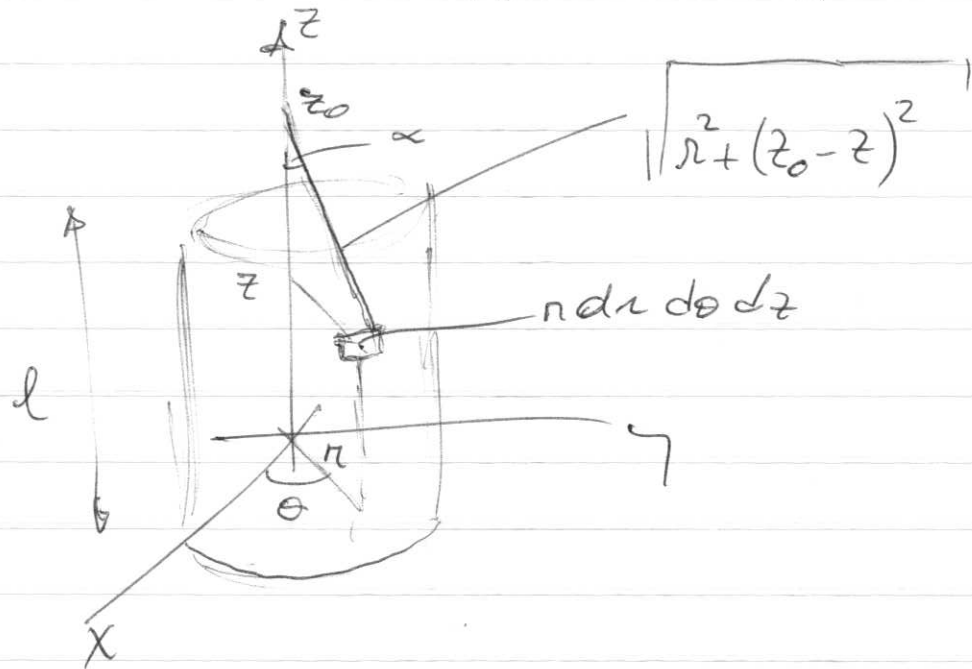 z
z₀
α
√(r² + (z₀ - z)²)
z
r dr dθ dz
l
r
y
θ
x